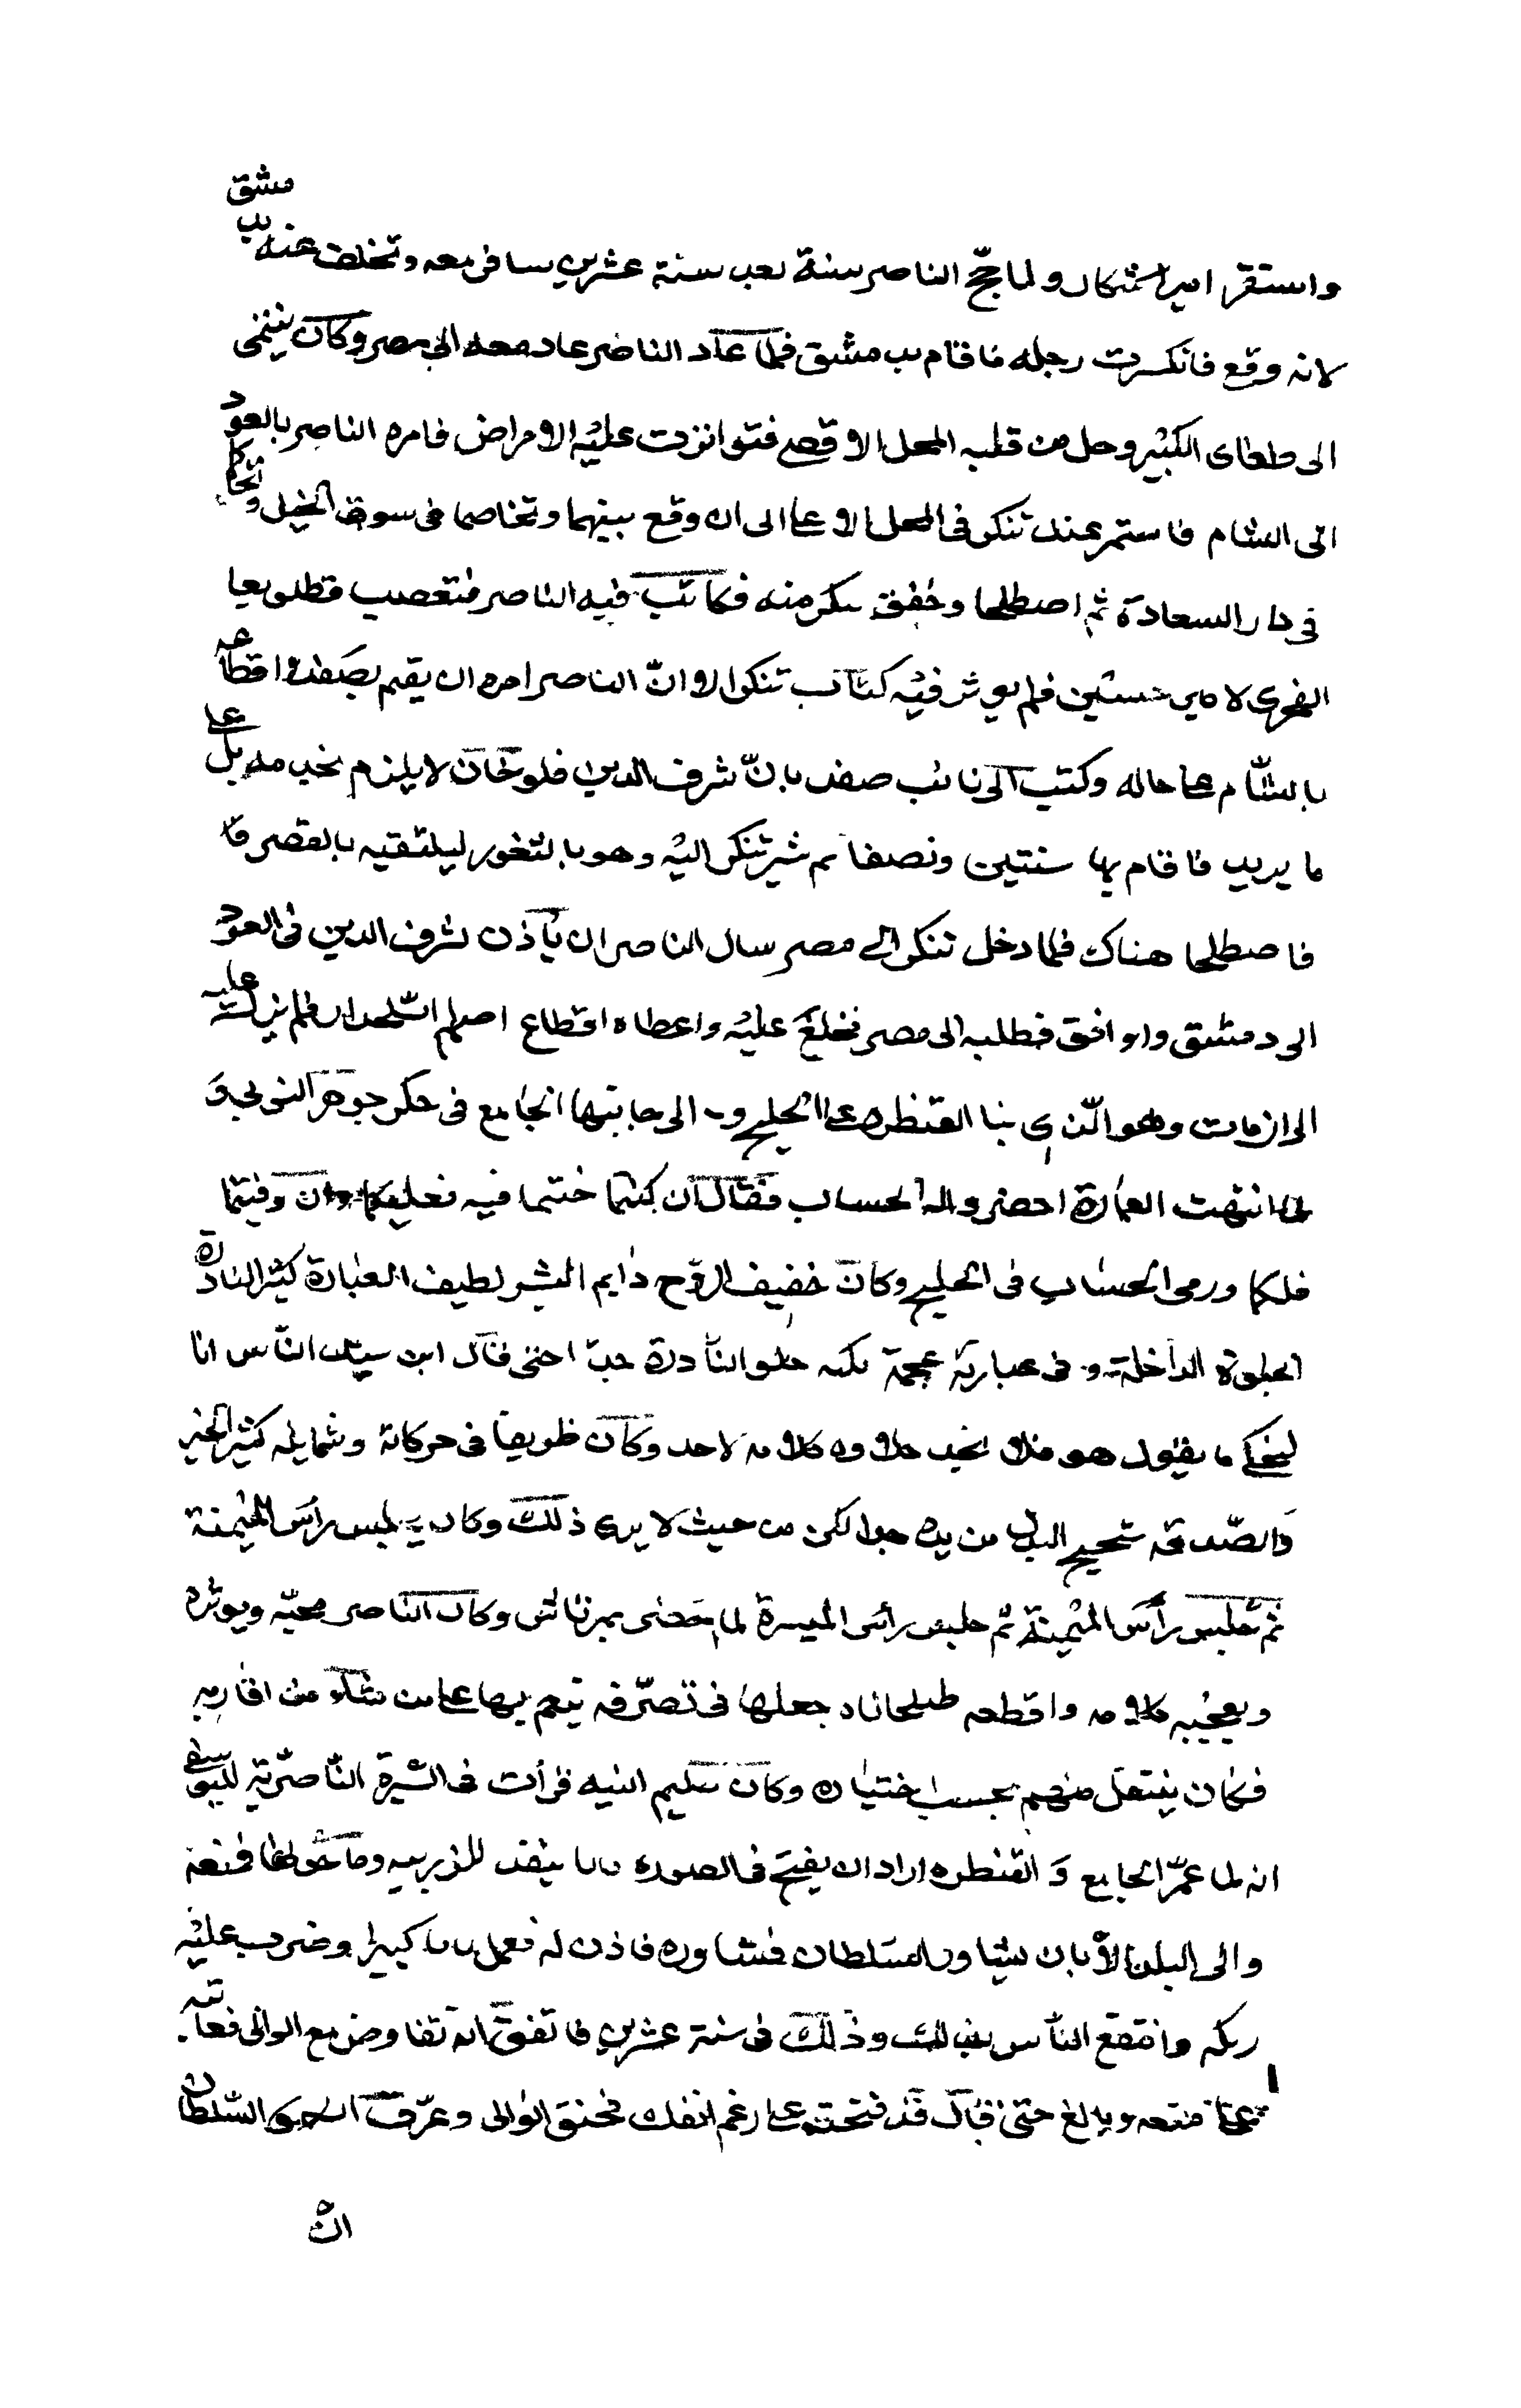 واستقر امير اشكار ولما حجّ الناصر سنة بعد سنة عشرين سافر معه وتخلف عنه بدمشق
لانه وقع فانكسرت رجله فاقام بدمشق فلما عاد الناصر عاد معه الى مصر وكان ينتمى
الى طغاى الكبير وحل من قلبه المحل الاقصى فتواترت عليه الامراض فامره الناصر بالعود
الى الشام فاستمر عند تنكز فى المحل الاعلا الى ان وقع بينهما وتخاصما فى سوق الخيل وتحاكما
فى دار السعادة ثم اصطلحا وخفق تنكز منه فكاتب فيه الناصر فتعصب قطلوبغا
الفخرى لامير حسين فلم يوثر فيه كتاب تنكز الا انّ الناصر امره ان يقيم بصفد واقطاعه
بالشام على حاله وكتب الى نائب صفد بانّ شرف الدين فلوخان لا يلزم بخدمه بل على
ما يريد فاقام بها سنتين ونصفا ثم شير تنكز اليه وهو بالثغور ليلتقيه بالقصر فا
فاصطلحا هناك فلما دخل تنكز الى مصر سال الناصر ان ياذن لشرف الدين فى العود
الى دمشق فطلبه الى مصر فخلع عليه واعطاه اقطاع اصلم السلحدار فلم يزل عليه
الى ان مات وهو الّذى بنا القنطره على الخليج و الى جانبها الجامع فى حكر جوهر النوبى و
لما انتهت العمارة احضروا له الحساب فقال ان كنتما ختما فيه فعليكما وان وفيتما
فلكما ورمى الحساب فى الخليج وكان خفيف الروّح دايم البشر لطيف العبارة كثير النادرة
الحلوة الداخلة و فى عبارته عجمة لكنه حلو النادرة جدّا حتى قال ابن سيّد النّاس انا
ليحكى ما يقول هو فلا نجد حلاوه كلامه لاحد وكان ظريفا فى حركاته وشمايله كثير الخير
والصّدقه شحيح البدل من يده جدا لكن من حيث لا يرى ذلك وكان يجلس راس الميمنة
ثم جلس راس الميمنة ثم جلس راس الميسرة لما حضر تمرتاش وكان الناصر يحبّه ويوثره
ويعجبه كلامه واقطعه طبلخاناه جعلها فى تصرّفه ينعم بها على من شاء من اقاربه
فكان ينتقل منهم بحسب اختياره وكان سليم النيه قرات فى السيرة النّاصريّة لليوسفى
انه لما عمّر الجامع و القنطره اراد ان يفتح فى الصوره بابا ينفذ للزريبيه وما حولها فمنعه
والى البلد الا بان يشاور السّلطان فشاوره فاذن له فعمل بابا كبيرا وضرب عليه
ركه وانتفع النّاس بذلك وذلك فى سنة عشرين فاتفق انه تفاوض مع الوالى فعاتبه
على منعه وبالغ حتى قال قد فتحته على رغم انفك فحنق الوالى وعرّف السلطان
ان